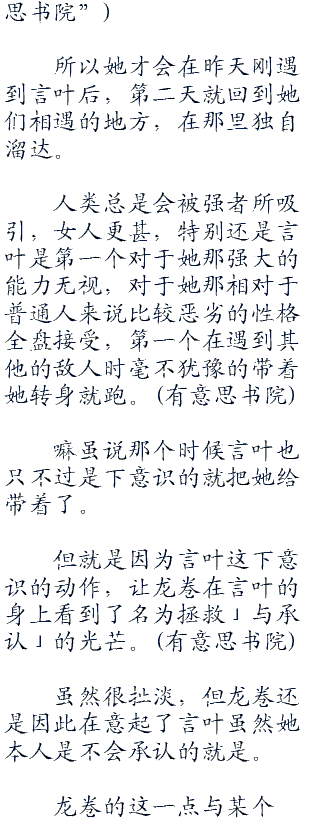 思书院”)
所以她才会在昨天刚遇
到言叶后，第二天就回到她
们相遇的地方，在那里独自
溜达。
人类总是会被强者所吸
引，女人更甚，特别还是言
叶是第一个对于她那强大的
能力无视，对于她那相对于
普通人来说比较恶劣的性格
全盘接受，第一个在遇到其
他的敌人时毫不犹豫的带着
她转身就跑。(有意思书院)
嘛虽说那个时候言叶也
只不过是下意识的就把她给
带着了。
但就是因为言叶这下意
识的动作，让龙卷在言叶的
身上看到了名为拯救」与承
认」的光芒。(有意思书院)
虽然很扯淡，但龙卷还
是因此在意起了言叶虽然她
本人是不会承认的就是。
龙卷的这一点与某个